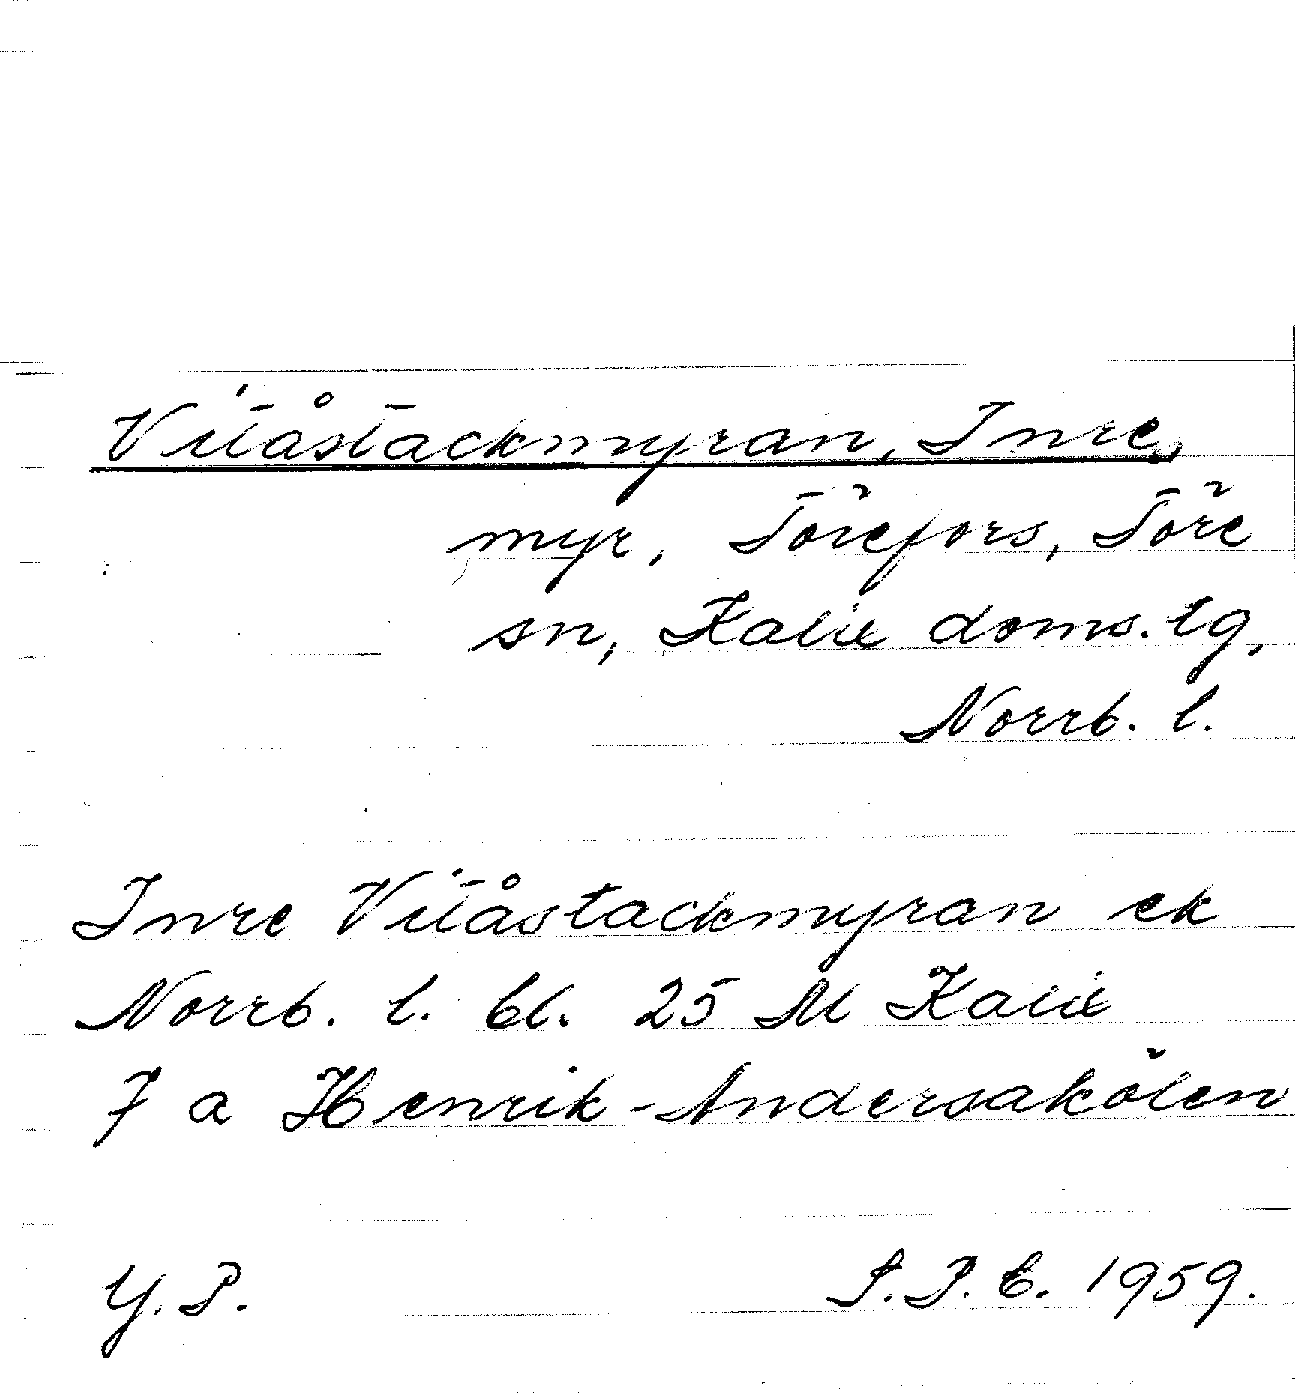 Vitåstackmyran, Inre,
myr, Törefors, Töre
sn, Kalix doms. tg,
Norrb. l.
Inre Vitåstackmyran ek
Norrb. l. bl. 25 M Kalix
7 a Henrik-Andersakölen
Y. P. 1959.